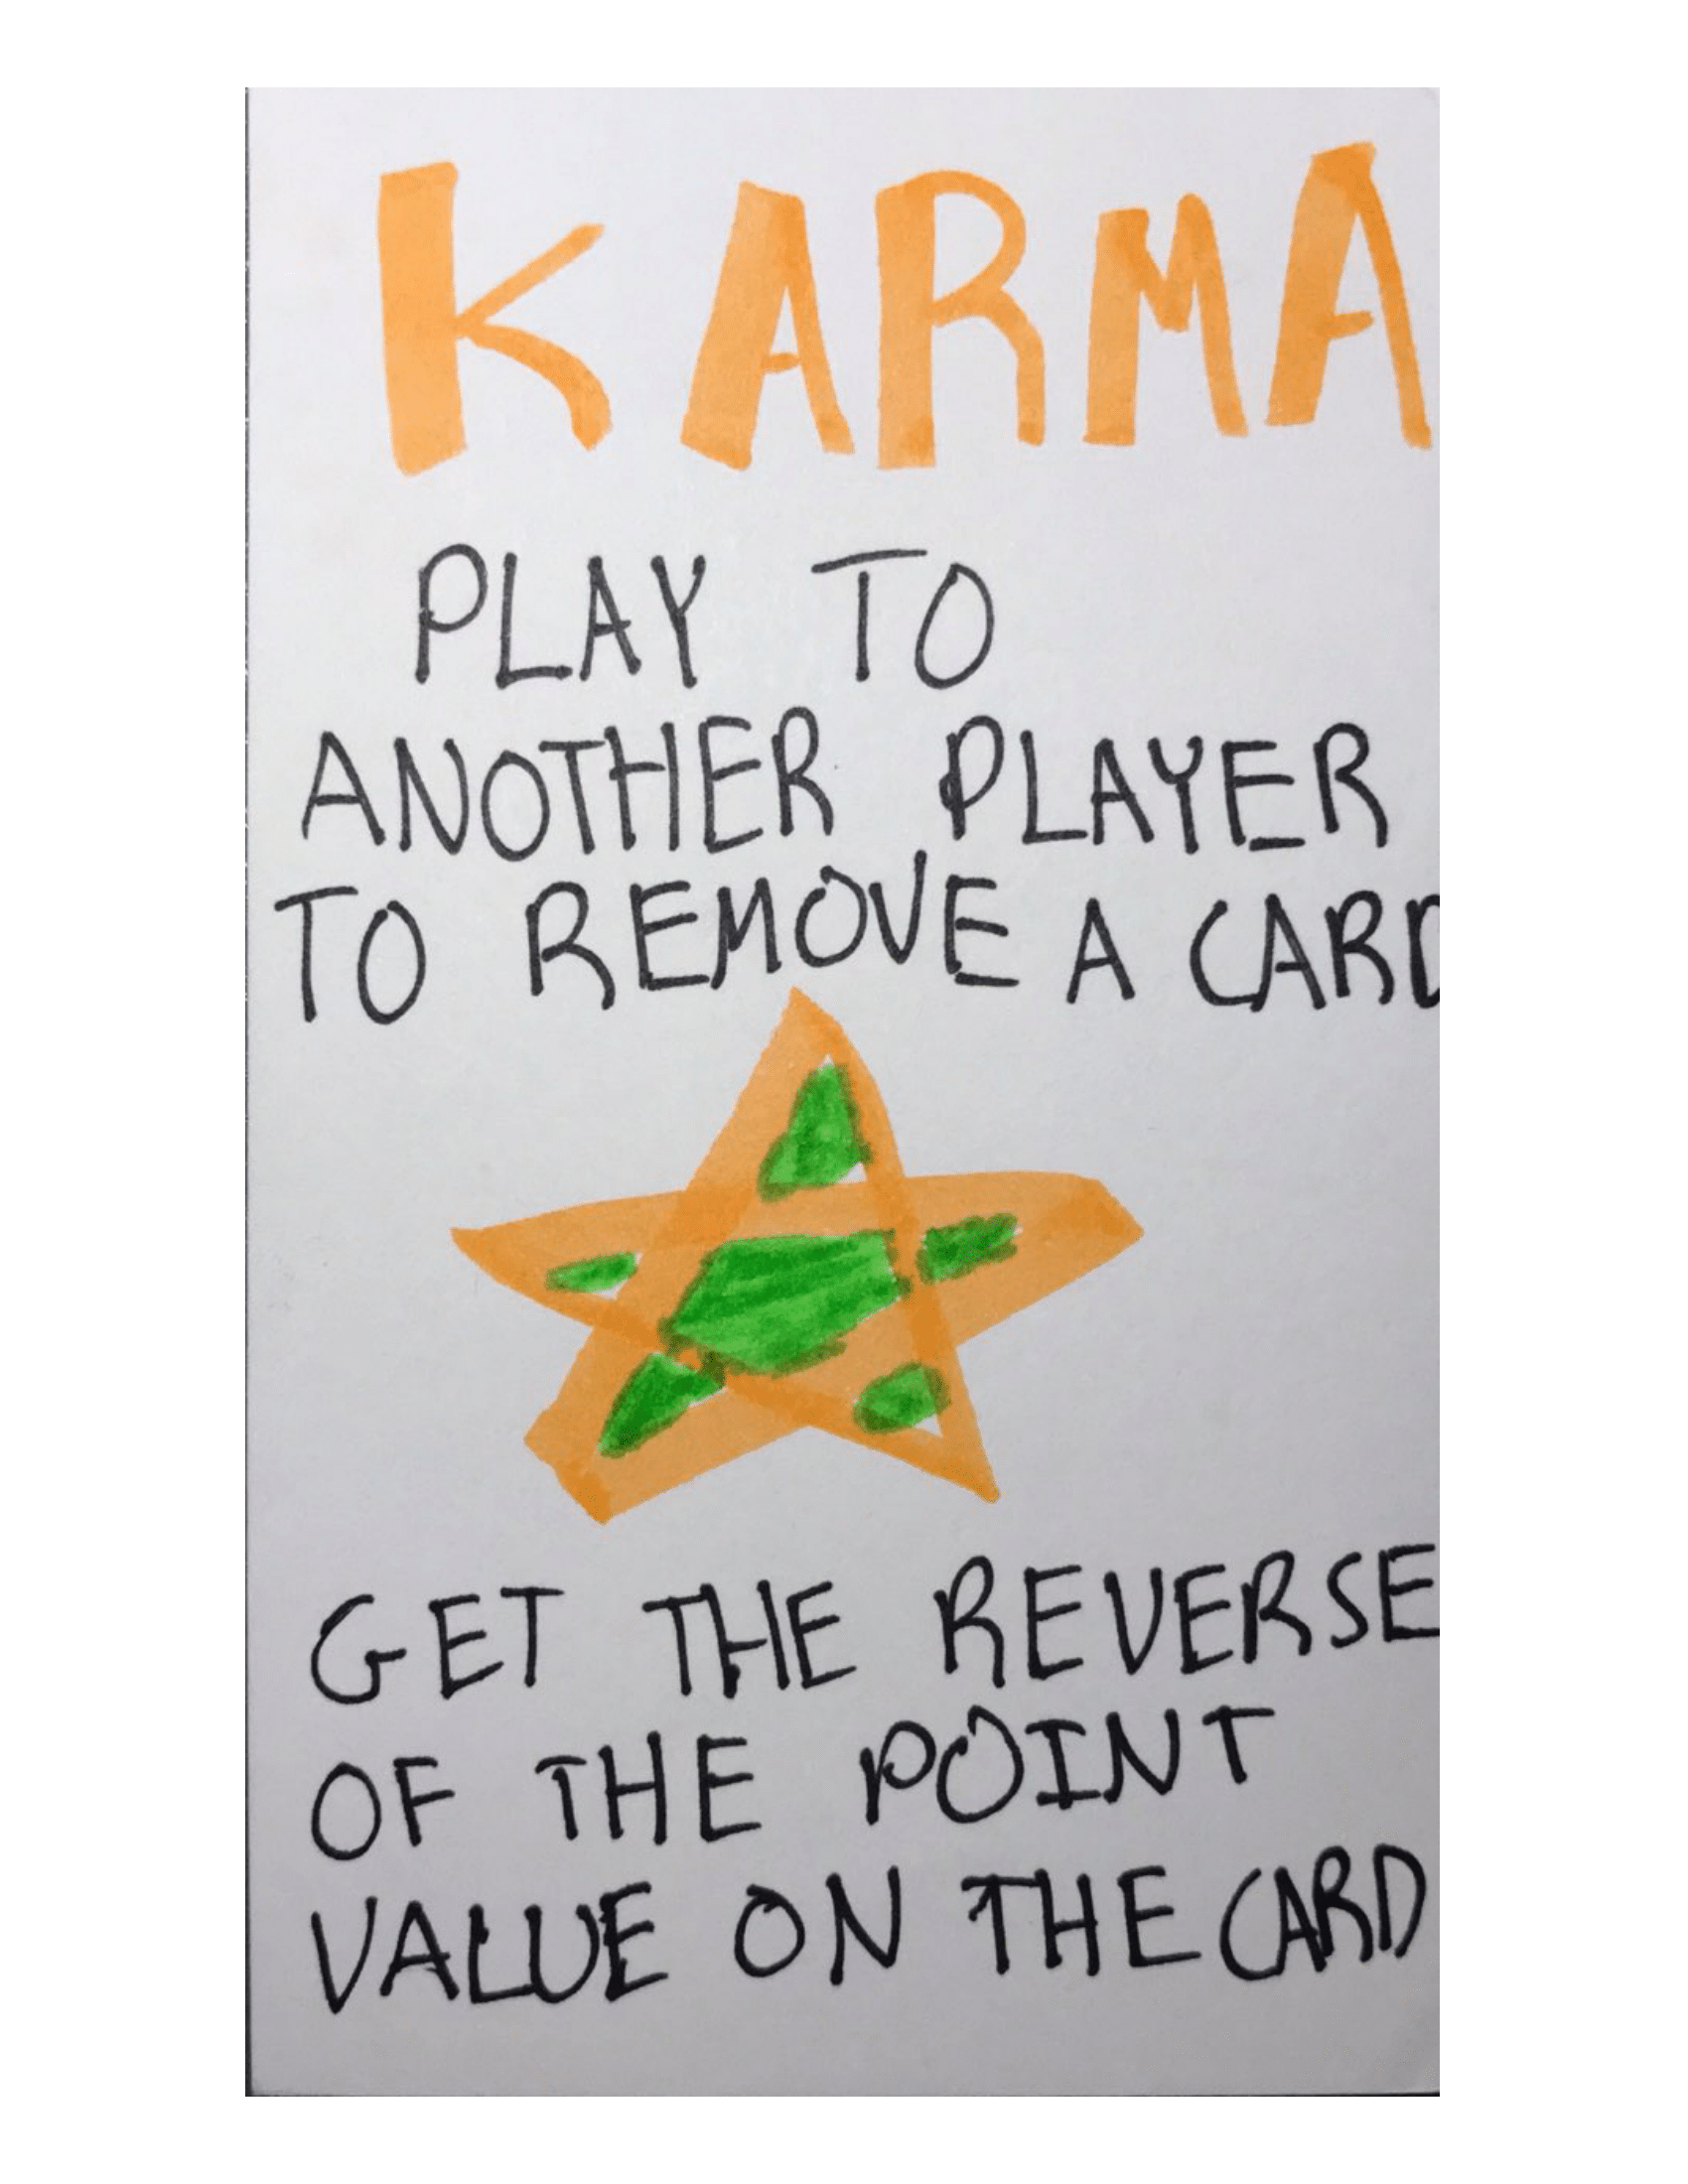 KARMA
PLAY TO
ANOTHER PLAYER
TO REMOVE A CARD
GET THE REVERSE
OF THE POINT
VALUE ON THE CARD